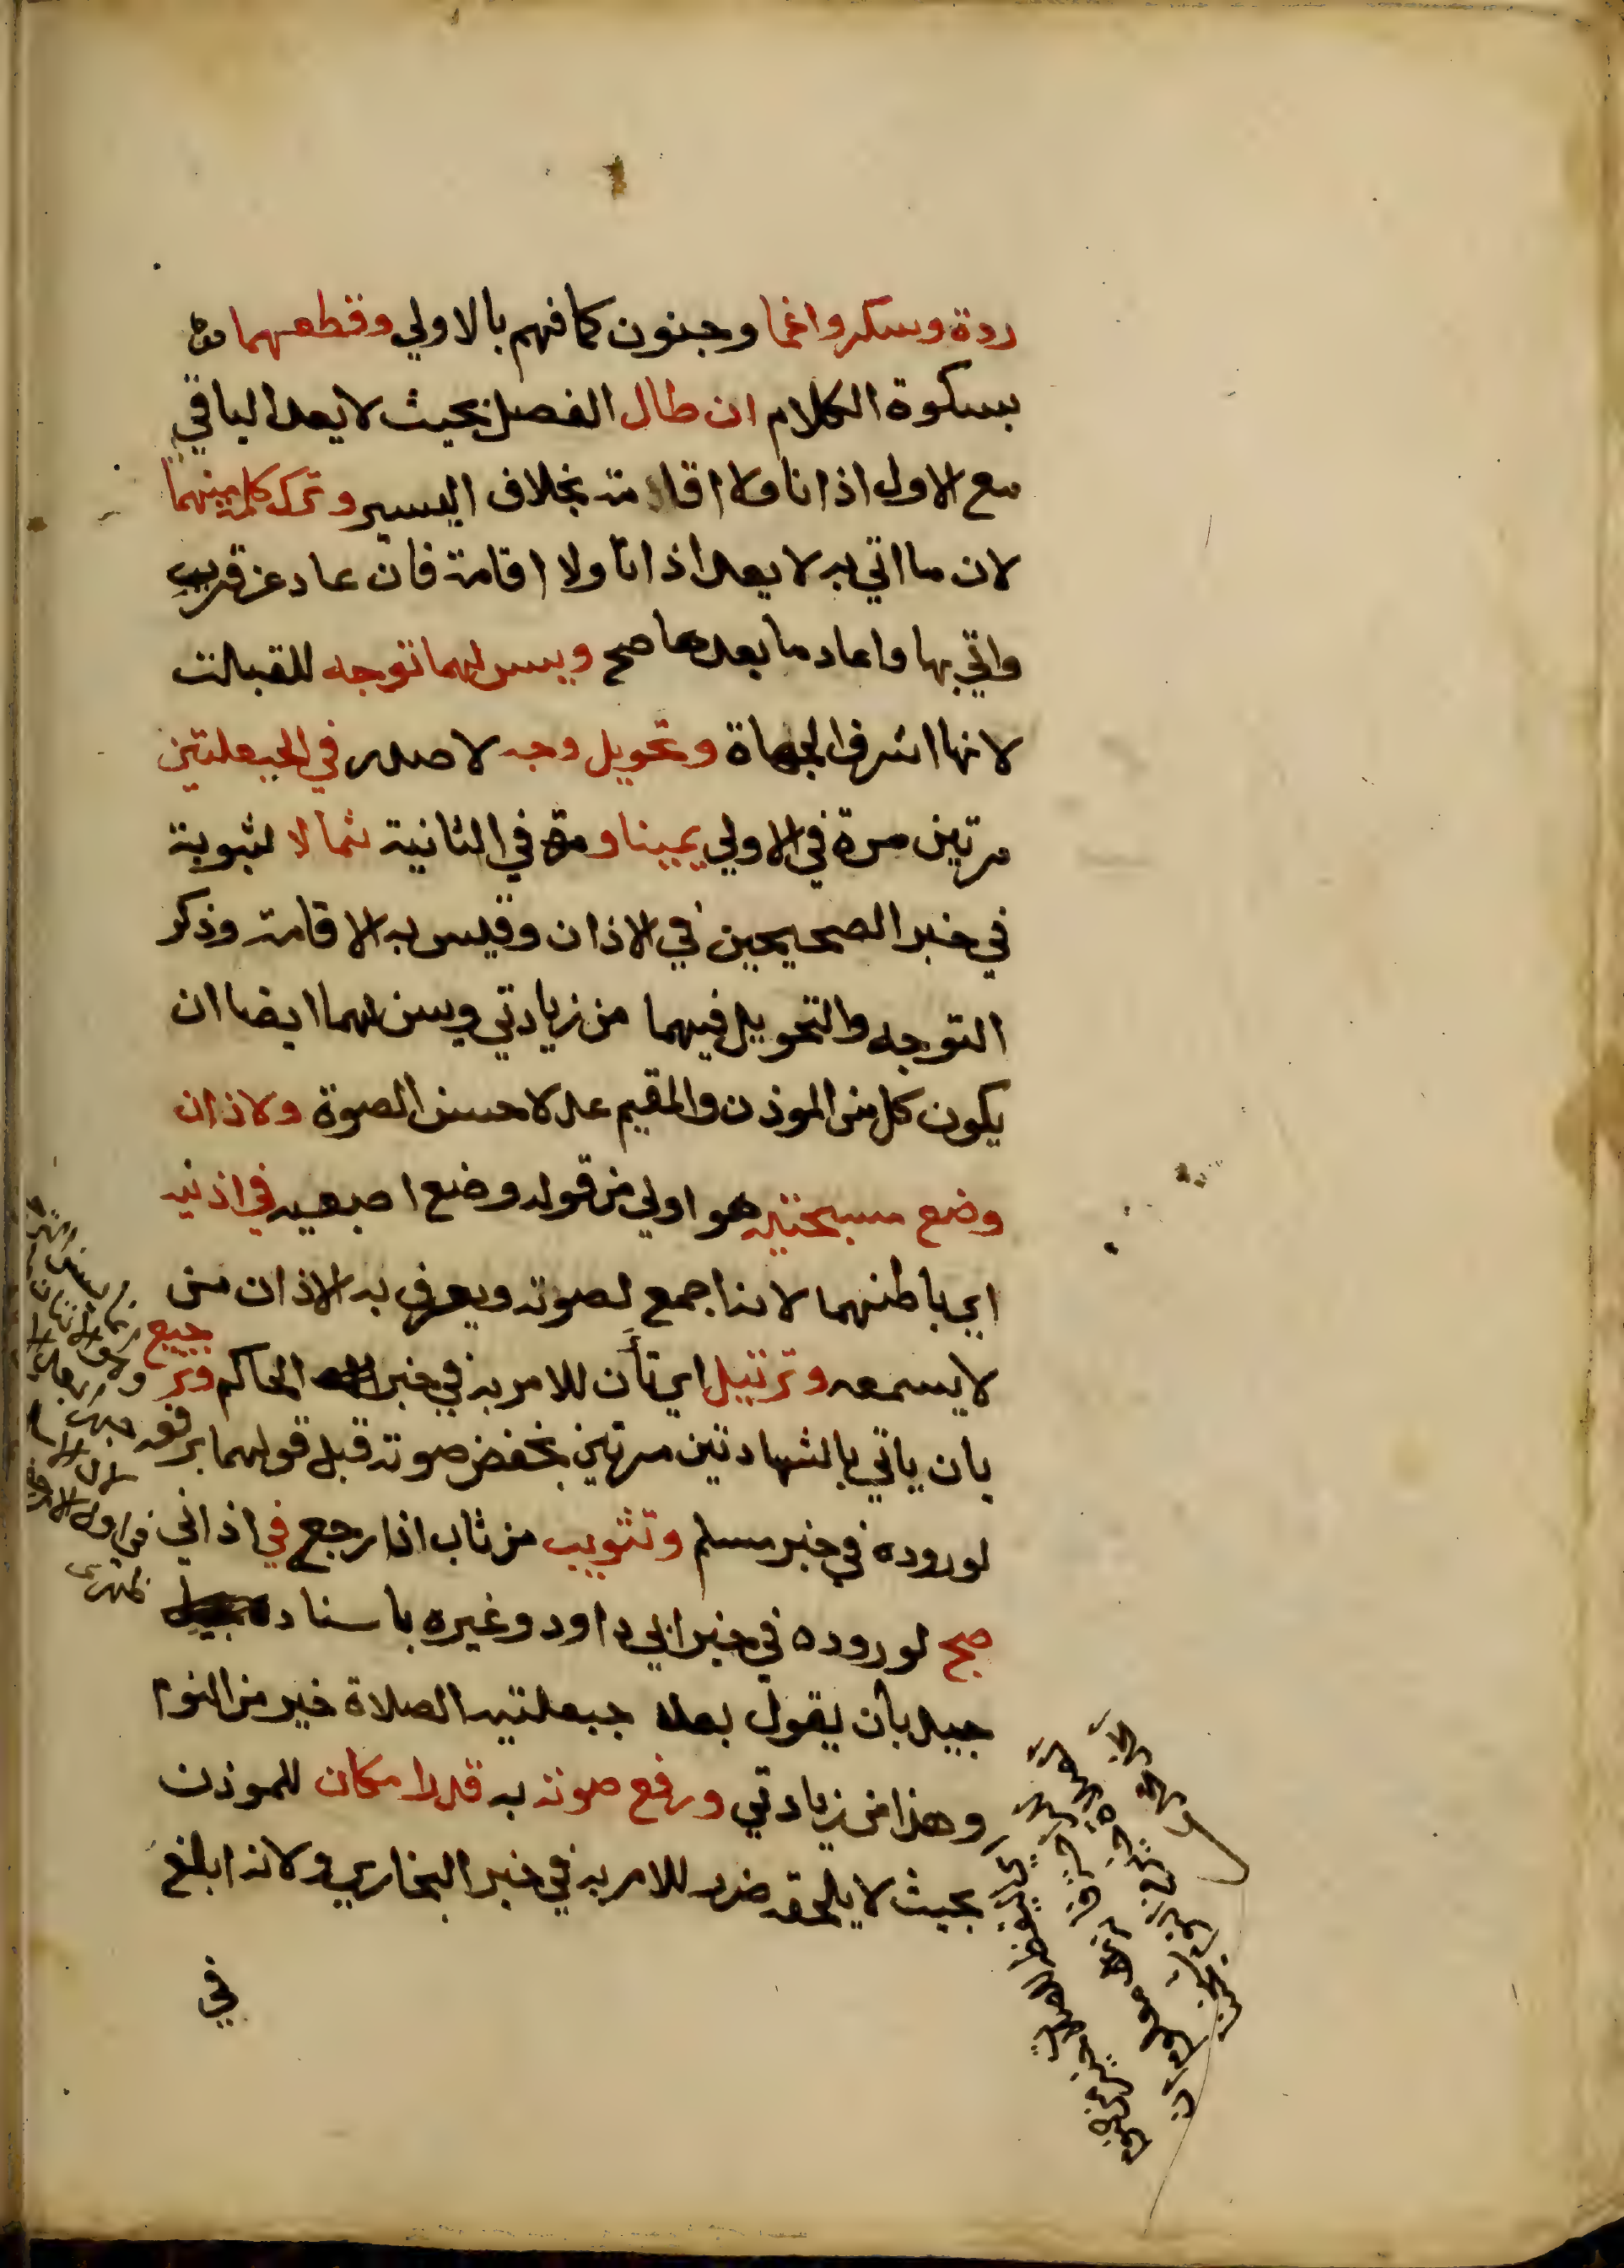 ردة وسكر واغما وجنون كما فهم بالاولي وقطعهما
بسكوة الكلام ان طال الفصل بحيث لا يعد الباقي
مع الاول اذانا ولا اقامة بخلاف اليسير وترك كلمة منهما
لان ما اتي به لا يعد اذانا ولا اقامة فان عاد عن قريب
واتي بها واعاد ما بعدها صح ويسن لهما توجه للقبلة
لانها اشرف الجهاة وتحويل وجه لا صدر في الحيعلتين
مرتين مرة في الاولي يمينا ومرة في الثانية شمالا لثبوته
في خبر الصحيحين في الاذان وقيس به الاقامة وذكر
التوجه والتحويل فيهما من زيادتي ويسن لهما ايضا ان
يكون كل من الموذن والمقيم عدلا حسن الصوة ولاذان
وضع مسبحتيه هو اولي من قوله وضع اصبعيه في اذنيه
اي باطنهما لانه اجمع لصوته ويعرف به الاذان من
لا يسمعه وترتيل اي تأن للامر به في خبر الحاكم وتر جيع
بان ياتي بالشهادتين مرتين بخفض صوته قبل قولهما برفعه
لوروده في خبر مسلم وتثويب من ثاب اذا رجع في اذاني
صبح لوروده في خبر ابي داود وغيره باسناد
جيد بان يقول بعد حيعلتيه الصلاة خير من النوم
وهذا من زيادتي ورفع صوته به قدر امكان للموذن
بحيث لا يلحقه ضرر للامر به في خبر البخاري ولانه ابلغ
في